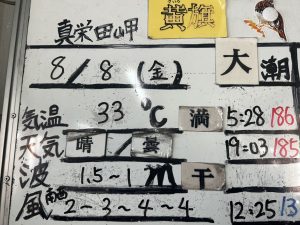 黄旗
真栄田岬
8/8(金) 大潮
気温 33℃ 満 5:28 186
天気 晴/曇 19:03 185
波 1.5~1m 干
風 南西 2~3~4~4 12:25 13